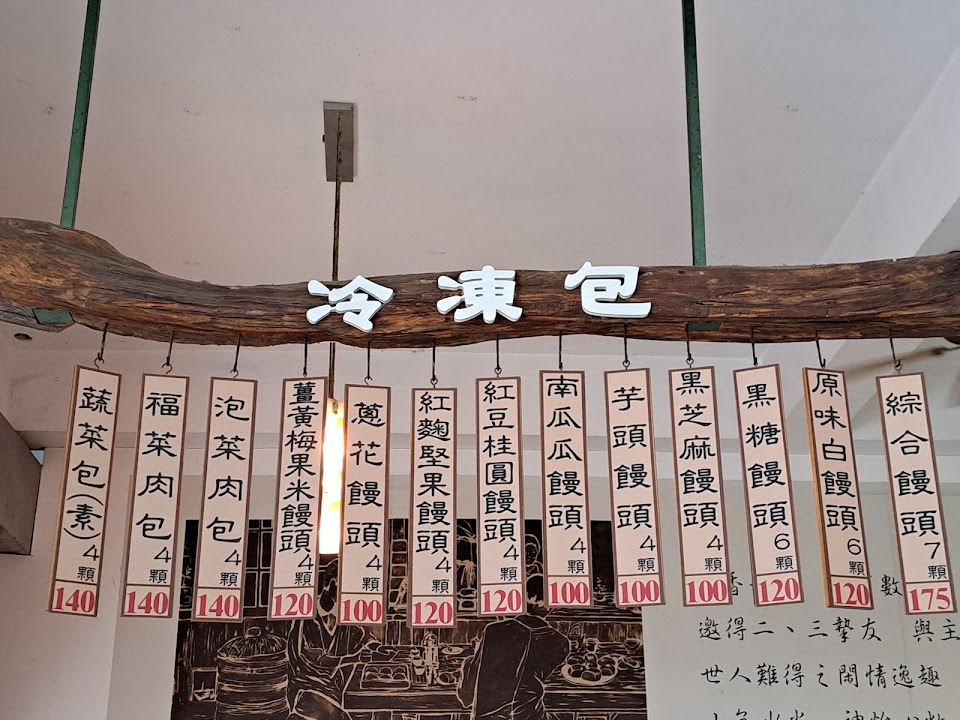 冷凍包
蔬菜包(素)4顆
140
福菜肉包4顆
140
泡菜肉包4顆
140
薑黃梅果米饅頭4顆
120
蔥花饅頭4顆
100
紅麴堅果饅頭4顆
120
紅豆桂圓饅頭4顆
120
南瓜瓜饅頭4顆
100
芋頭饅頭4顆
100
黑芝麻饅頭4顆
100
黑糖饅頭6顆
120
原味白饅頭6顆
120
綜合饅頭7顆
175
香 數
邀得二、三摯友 與主
世人難得之閒情逸趣